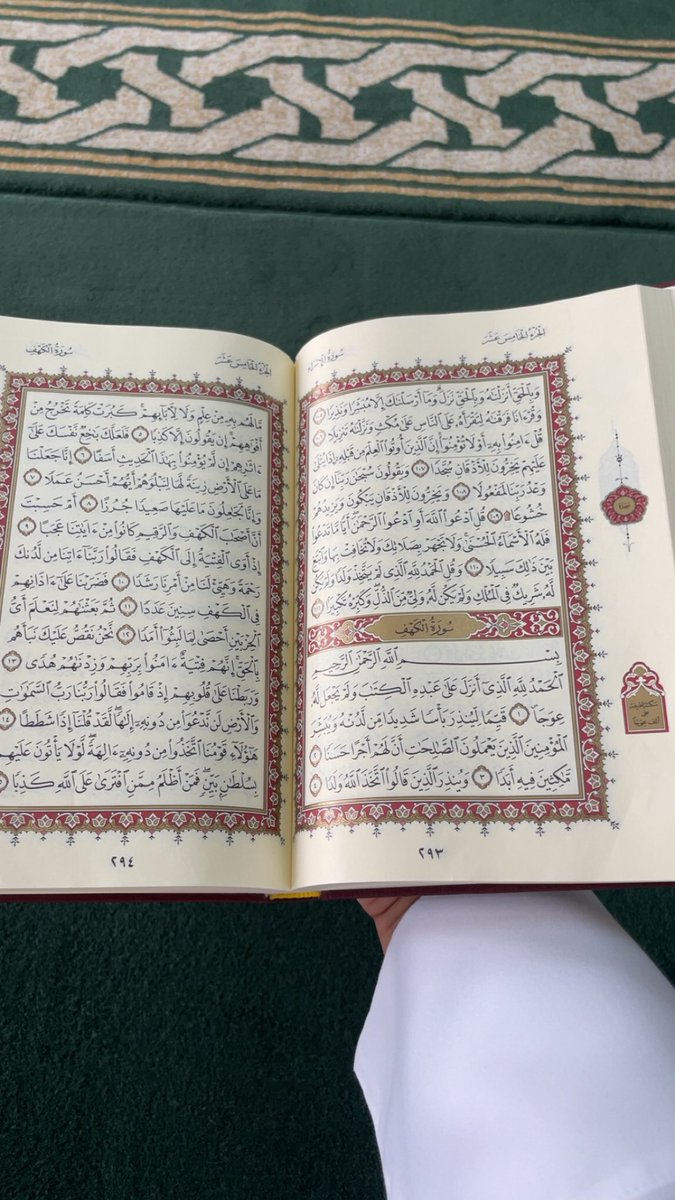 الجزء الخامس عشر
سورة الإسراء
وَبِالْحَقِّ أَنزَلْنَاهُ وَبِالْحَقِّ نَزَلَ وَمَا أَرْسَلْنَاكَ إِلَّا مُبَشِّرًا وَنَذِيرًا ١٠٥
وَقُرْآنًا فَرَقْنَاهُ لِتَقْرَأَهُ عَلَى النَّاسِ عَلَىٰ مُكْثٍ وَنَزَّلْنَاهُ تَنزِيلًا ١٠٦
قُلْ ءَامِنُوا بِهِ أَوْ لَا تُؤْمِنُوا إِنَّ الَّذِينَ أُوتُوا الْعِلْمَ مِن قَبْلِهِ إِذَا يُتْلَىٰ
عَلَيْهِمْ يَخِرُّونَ لِلْأَذْقَانِ سُجَّدًا ١٠٧ وَيَقُولُونَ سُبْحَانَ رَبِّنَا إِن كَانَ
وَعْدُ رَبِّنَا لَمَفْعُولًا ١٠٨ وَيَخِرُّونَ لِلْأَذْقَانِ يَبْكُونَ وَيَزِيدُهُمْ
خُشُوعًا ۩ ١٠٩ قُلِ ادْعُوا اللَّهَ أَوِ ادْعُوا الرَّحْمَٰنَ أَيًّا مَّا تَدْعُوا
فَلَهُ الْأَسْمَاءُ الْحُسْنَىٰ وَلَا تَجْهَرْ بِصَلَاتِكَ وَلَا تُخَافِتْ بِهَا وَابْتَغِ
بَيْنَ ذَٰلِكَ سَبِيلًا ١١٠ وَقُلِ الْحَمْدُ لِلَّهِ الَّذِي لَمْ يَتَّخِذْ وَلَدًا وَلَمْ يَكُن
لَّهُ شَرِيكٌ فِي الْمُلْكِ وَلَمْ يَكُن لَّهُ وَلِيٌّ مِّنَ الذُّلِّ وَكَبِّرْهُ تَكْبِيرًا ١١١
سورة الكهف
بِسْمِ اللَّهِ الرَّحْمَٰنِ الرَّحِيمِ
الْحَمْدُ لِلَّهِ الَّذِي أَنزَلَ عَلَىٰ عَبْدِهِ الْكِتَابَ وَلَمْ يَجْعَل لَّهُ
عِوَجًا ١ قَيِّمًا لِّيُنذِرَ بَأْسًا شَدِيدًا مِّن لَّدُنْهُ وَيُبَشِّرَ
الْمُؤْمِنِينَ الَّذِينَ يَعْمَلُونَ الصَّالِحَاتِ أَنَّ لَهُمْ أَجْرًا حَسَنًا ٢
مَّاكِثِينَ فِيهِ أَبَدًا ٣ وَيُنذِرَ الَّذِينَ قَالُوا اتَّخَذَ اللَّهُ وَلَدًا ٤
٢٩٣
الجزء الخامس عشر
سورة الكهف
مَّا لَهُم بِهِ مِنْ عِلْمٍ وَلَا لِآبَائِهِمْ كَبُرَتْ كَلِمَةً تَخْرُجُ مِنْ
أَفْوَاهِهِمْ إِن يَقُولُونَ إِلَّا كَذِبًا ٥ فَلَعَلَّكَ بَاخِعٌ نَّفْسَكَ عَلَىٰ
ءَاثَارِهِمْ إِن لَّمْ يُؤْمِنُوا بِهَٰذَا الْحَدِيثِ أَسَفًا ٦ إِنَّا جَعَلْنَا
مَا عَلَى الْأَرْضِ زِينَةً لَّهَا لِنَبْلُوَهُمْ أَيُّهُمْ أَحْسَنُ عَمَلًا ٧
وَإِنَّا لَجَاعِلُونَ مَا عَلَيْهَا صَعِيدًا جُرُزًا ٨ أَمْ حَسِبْتَ
أَنَّ أَصْحَابَ الْكَهْفِ وَالرَّقِيمِ كَانُوا مِنْ ءَايَاتِنَا عَجَبًا ٩
إِذْ أَوَى الْفِتْيَةُ إِلَى الْكَهْفِ فَقَالُوا رَبَّنَا ءَاتِنَا مِن لَّدُنكَ
رَحْمَةً وَهَيِّئْ لَنَا مِنْ أَمْرِنَا رَشَدًا ١٠ فَضَرَبْنَا عَلَىٰ ءَاذَانِهِمْ
فِي الْكَهْفِ سِنِينَ عَدَدًا ١١ ثُمَّ بَعَثْنَاهُمْ لِنَعْلَمَ أَيُّ
الْحِزْبَيْنِ أَحْصَىٰ لِمَا لَبِثُوا أَمَدًا ١٢ نَّحْنُ نَقُصُّ عَلَيْكَ نَبَأَهُم
بِالْحَقِّ إِنَّهُمْ فِتْيَةٌ ءَامَنُوا بِرَبِّهِمْ وَزِدْنَاهُمْ هُدًى ١٣
وَرَبَطْنَا عَلَىٰ قُلُوبِهِمْ إِذْ قَامُوا فَقَالُوا رَبُّنَا رَبُّ السَّمَاوَاتِ
وَالْأَرْضِ لَن نَّدْعُوَا مِن دُونِهِ إِلَٰهًا لَّقَدْ قُلْنَا إِذًا شَطَطًا ١٤
هَٰؤُلَاءِ قَوْمُنَا اتَّخَذُوا مِن دُونِهِ ءَالِهَةً لَّوْلَا يَأْتُونَ عَلَيْهِم
بِسُلْطَانٍ بَيِّنٍ فَمَنْ أَظْلَمُ مِمَّنِ افْتَرَىٰ عَلَى اللَّهِ كَذِبًا
٢٩٤